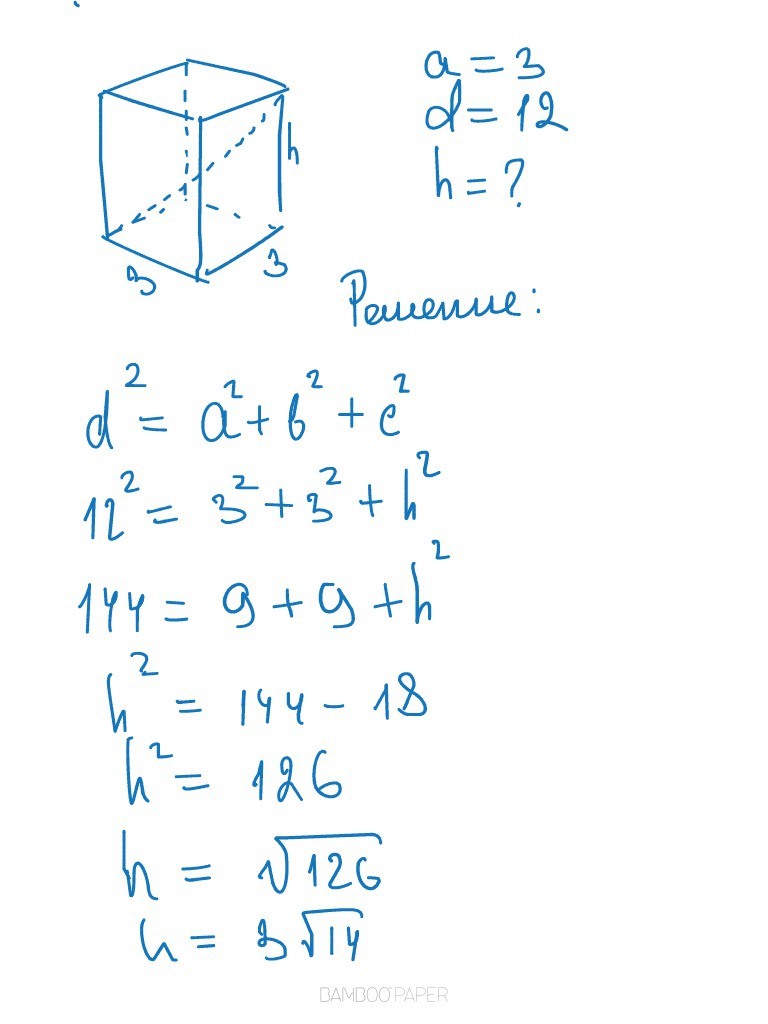 a = 3
d = 12
h = ?
h
3
3
Решение:
d² = a² + b² + c²
12² = 3² + 3² + h²
144 = 9 + 9 + h²
h² = 144 - 18
h² = 126
h = √126
h = 3√14
BAMBOO PAPER